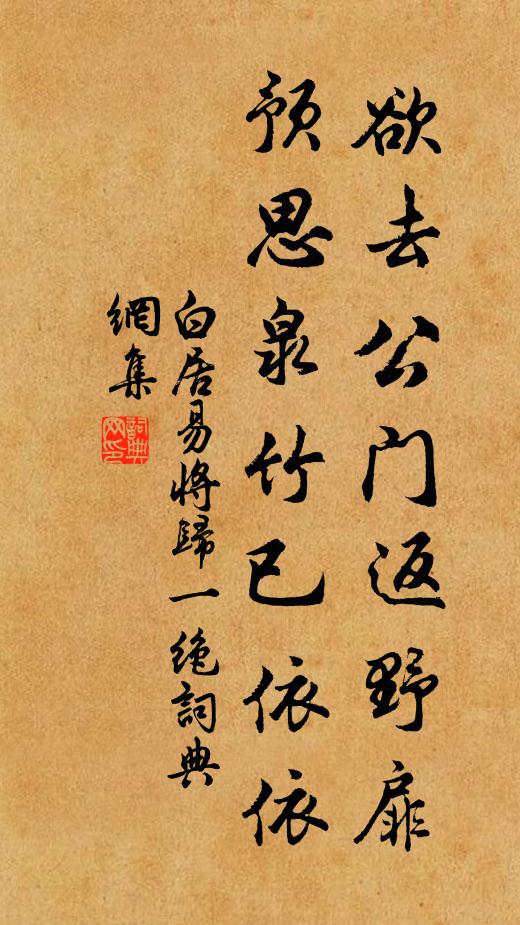 欲去公门返野扉
预思泉竹已依依
白居易将歸一绝詞典
網集
詞典
网印